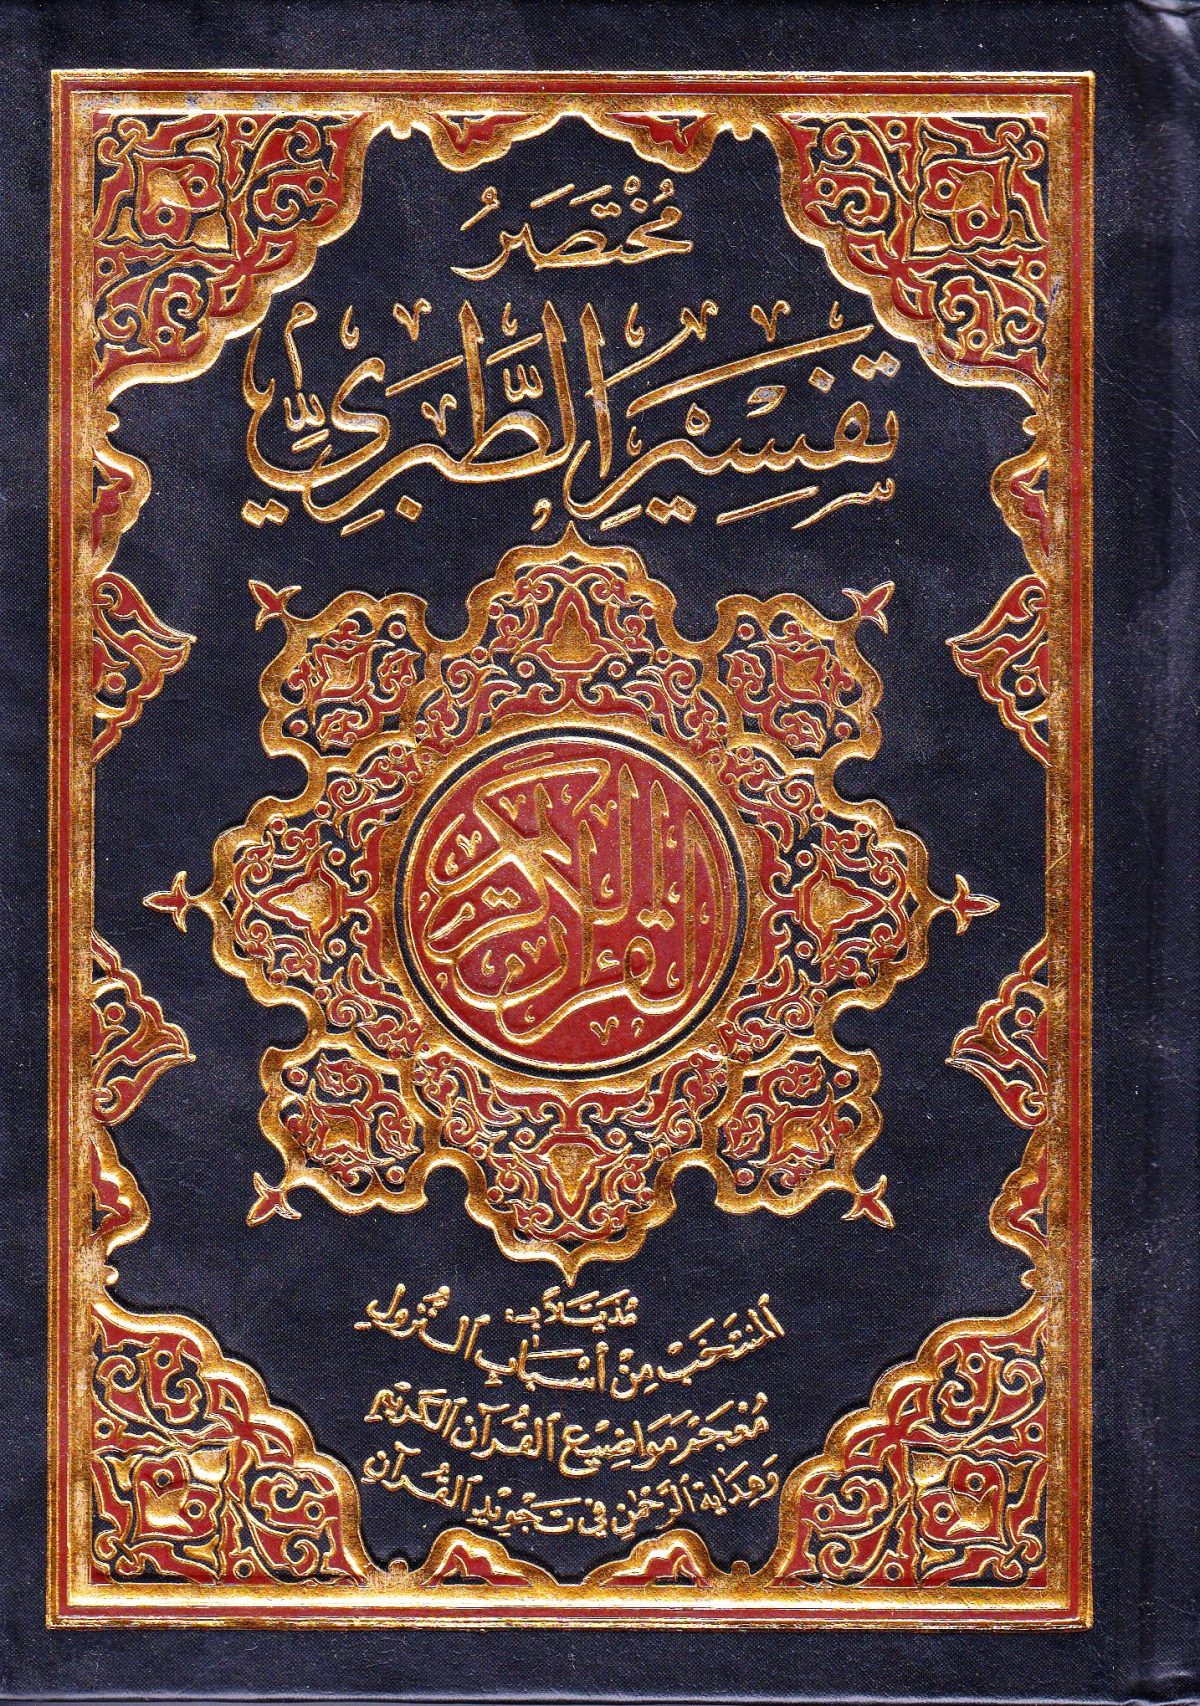 مُخْتَصَرُ
تَفْسِيْرِ الطَّبَرِيِّ
القرآن الكريم
مُذَيَّلاً بـ
المنتَخَب مِنْ أَسْبَابِ النُّزول
مُعْجَم مَوَاضِيع القُرآن الكَريْم
وَهِدَاية الرَّحْمٰن في تَجْوِيد القُرآن